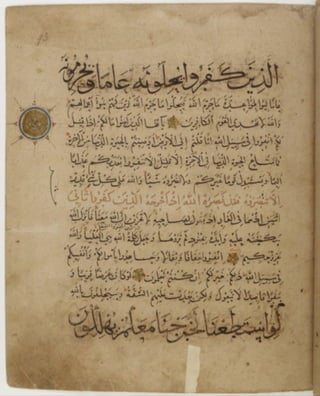 الذين كفروا يحلونه عاما ويحرمونه
عاما ليواطئوا عدة ما حرم الله فيحلوا ما حرم الله زين لهم سوء اعمالهم
والله لا يهدي القوم الكافرين يا ايها الذين امنوا ما لكم اذا قيل
لكم انفروا في سبيل الله اثاقلتم الى الارض ارضيتم بالحيوة الدنيا من الاخرة
فما متاع الحيوة الدنيا في الاخرة الا قليل الا تنفروا يعذبكم عذابا
اليما ويستبدل قوما غيركم ولا تضروه شيئا والله على كل شيء قدير
الا تنصروه فقد نصره الله اذ اخرجه الذين كفروا ثاني
اثنين اذ هما في الغار اذ يقول لصاحبه لا تحزن ان الله معنا فانزل الله
سكينته عليه وايده بجنود لم تروها وجعل كلمة الله هي العليا والله
عزيز حكيم انفروا خفافا وثقالا وجاهدوا باموالكم وانفسكم
في سبيل الله ذلكم خير لكم ان كنتم تعلمون لو كان عرضا قريبا و
سفرا قاصدا لاتبعوك ولكن بعدت عليهم الشقة وسيحلفون بالله
لو استطعنا لخرجنا معكم يهلكون